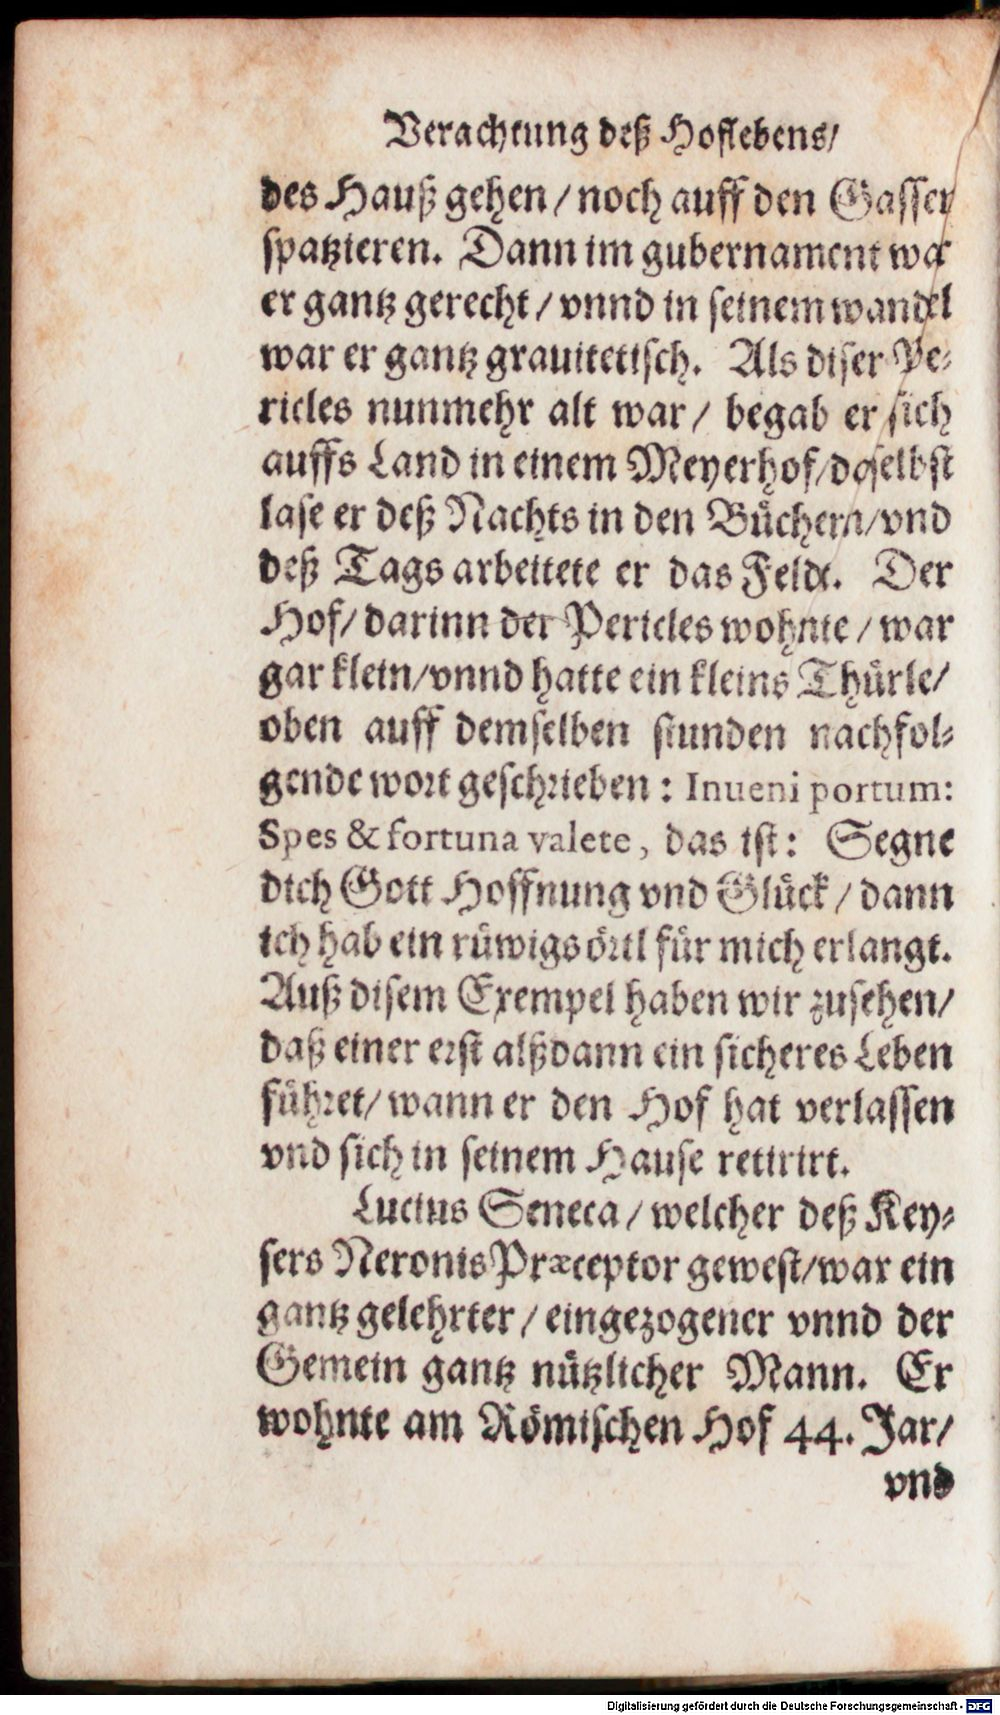 Verachtung deß Hoflebens/
des Hauß gehen / noch auff den Gassen
spatzieren. Dann im gubernament war
er gantz gerecht / vnnd in seinem wandel
war er gantz grauitetisch. Als diser Pe-
ricles nunmehr alt war / begab er sich
auffs Land in einem Meyerhof/daselbst
lase er deß Nachts in den Bůchern/vnd
deß Tags arbeitete er das Feldt. Der
Hof/ darinn der Pericles wohnte / war
gar klein/vnnd hatte ein kleins Thürle/
oben auff demselben stunden nachfol-
gende wort geschrieben : Inueni portum:
Spes & fortuna valete, das ist: Segne
dich Gott Hoffnung vnd Glück / dann
ich hab ein růwigs örtl für mich erlangt.
Auß disem Exempel haben wir zusehen/
daß einer erst alßdann ein sicheres Leben
führet/ wann er den Hof hat verlassen
vnd sich in seinem Hause retirirt.
Lucius Seneca / welcher deß Key-
sers Neronis Præceptor gewest/war ein
gantz gelehrter / eingezogener vnnd der
Gemein gantz nützlicher Mann. Er
wohnte am Römischen Hof 44. Jar/
vnd
Digitalisierung gefördert durch die Deutsche Forschungsgemeinschaft - DFG